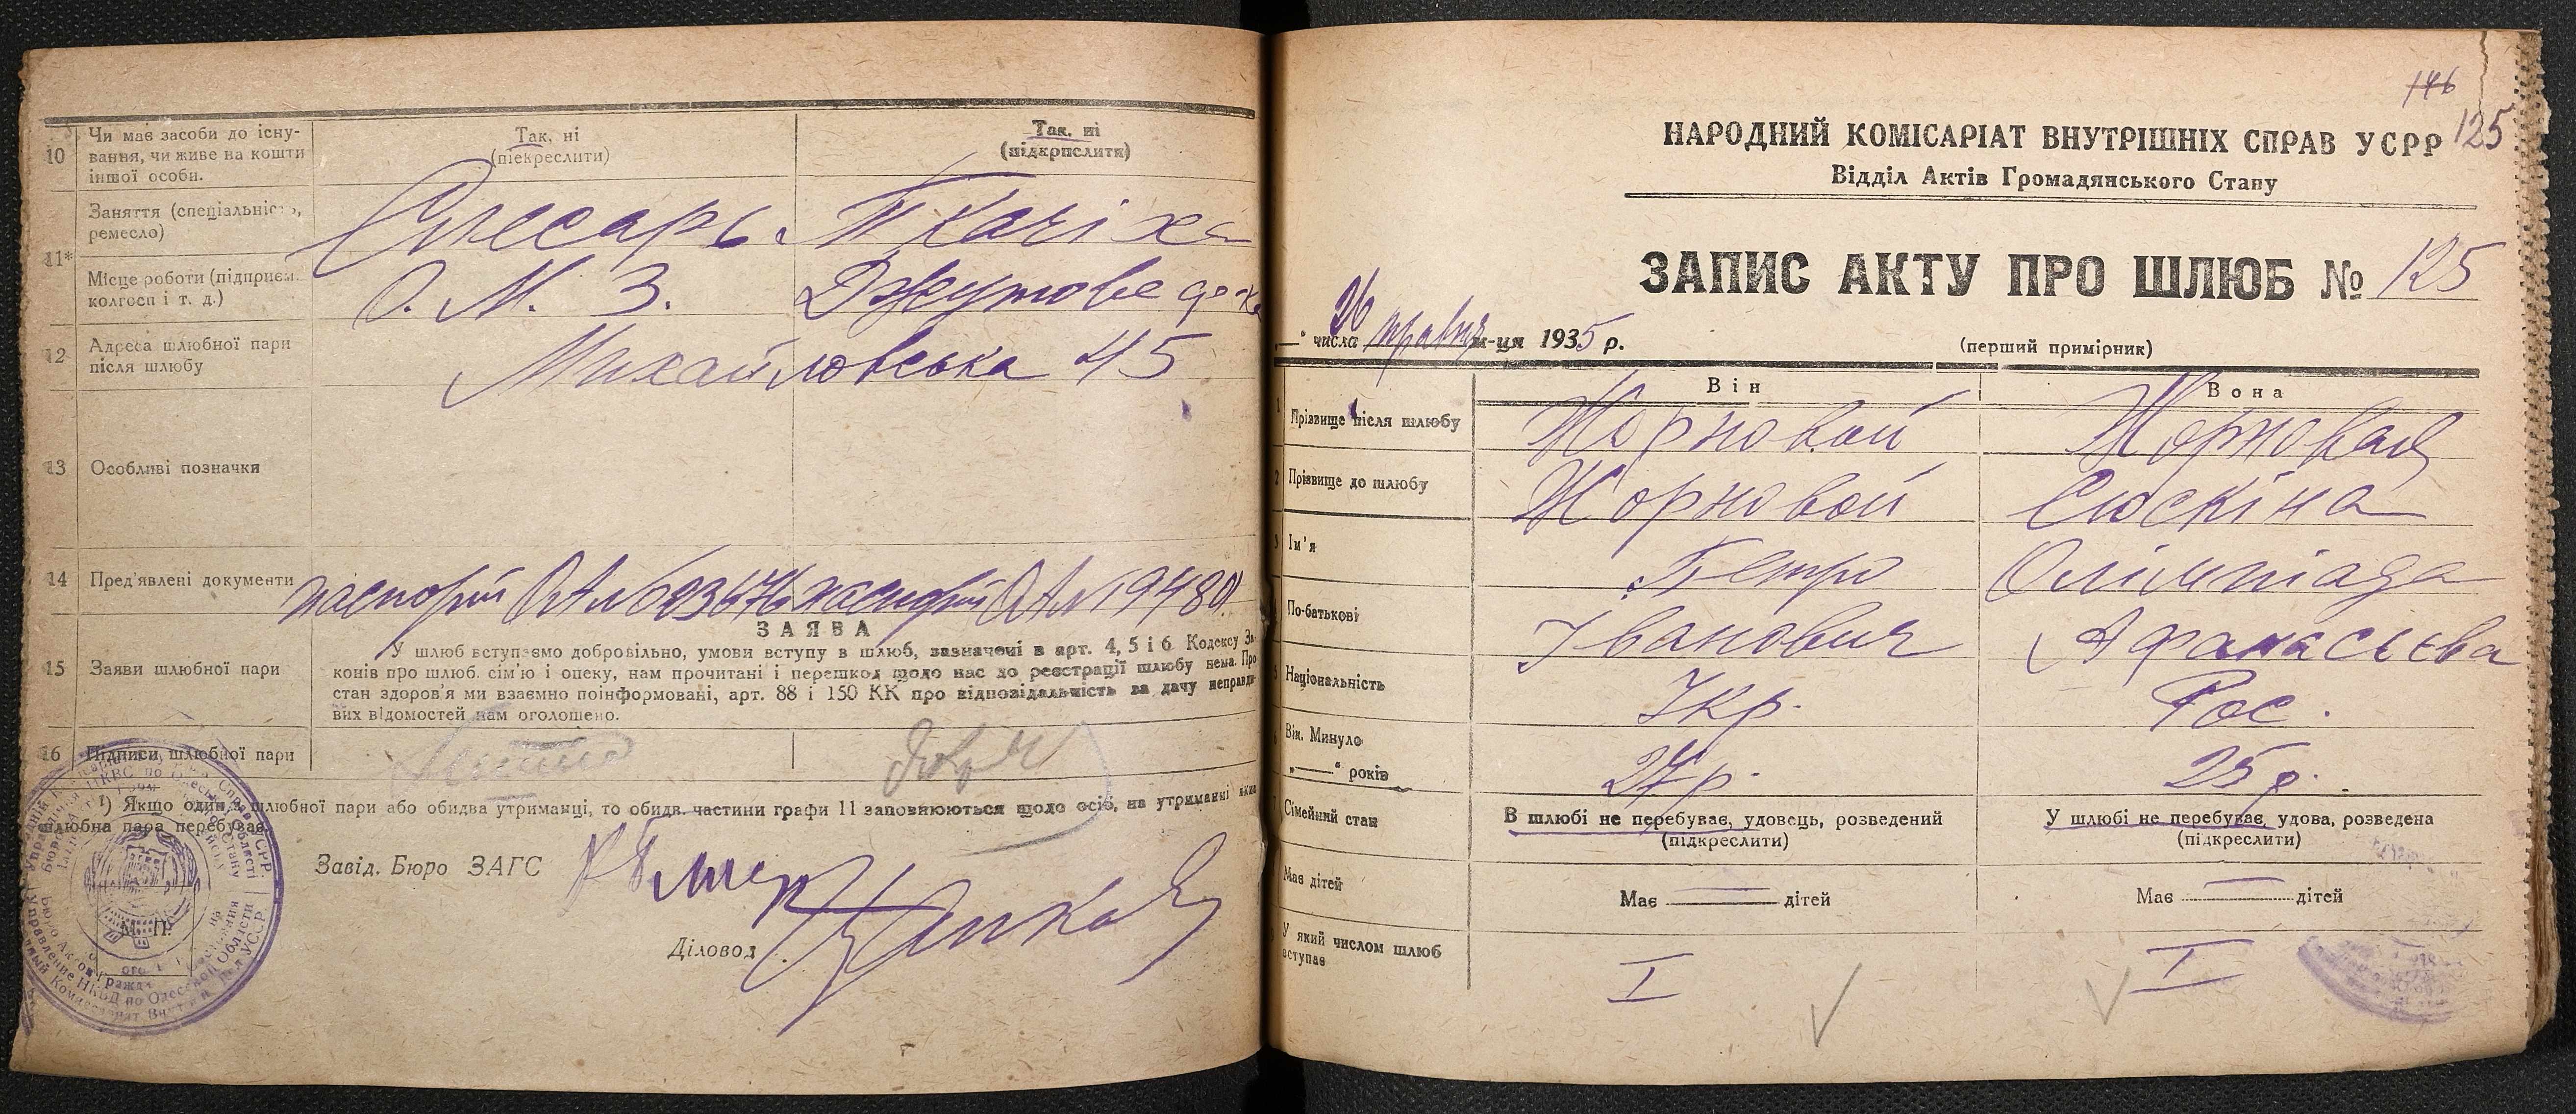 10 Чи має засоби до існу-
вання, чи живе на кошти
іншої особи.
Так, ні
(піекреслити)
Так, ні
(підкрпслити)
11*
Заняття (спеціальність,
ремесло)
Слесарь
Ткачіха
Місце роботи (підприєм.
колгосп і т. д.)
О. М. З.
Джутова ф-ка
12 Адреса шлюбної пари
після шлюбу
Михайловська 45
13 Особливі позначки
14 Пред'явлені документи
паспорт
паспорт
ЗАЯВА
15 Заяви шлюбної пари
У шлюб вступаємо добровільно, умови вступу в шлюб, зазначені в арт. 4, 5 і 6 Кодексу За-
конів про шлюб. сім'ю і опеку, нам прочитані і перешкод щодо нас до реєстрації шлюбу нема. Про
стан здоров'я ми взаємно поінформовані, арт. 88 і 150 КК про відповідальність за дачу неправди-
вих відомостей нам оголошено.
16 Підписи шлюбної пари
¹) Якщо один з шлюбної пари або обидва утриманці, то обидв. частини графи 11 заповнюються щодо осіб, на утриманні яких
шлюбна пара перебуває.
Завід. Бюро ЗАГС
Діловод
М. П.
146
125
НАРОДНИЙ КОМІСАРІАТ ВНУТРІШНІХ СПРАВ УСРР
Відділ Актів Громадянського Стану
ЗАПИС АКТУ ПРО ШЛЮБ № 125
26 числа травня м-ця 1935 р.
(перший примірник)
Він
Вона
1 Прізвище після шлюбу
Жорновой
Жорновая
2 Прізвище до шлюбу
Жорновой
Сюскіна
3 Ім'я
Петро
Олімпіада
По-батькові
Іванович
Афанасьєва
Національність
Укр.
Рос.
Вік. Минуло
„——" років
27 р.
25 р.
Сімейний стан
В шлюбі не перебуває, удовець, розведений
(підкреслити)
У шлюбі не перебуває, удова, розведена
(підкреслити)
Має дітей
Має —— дітей
Має —— дітей
У який числом шлюб
вступає
I
I